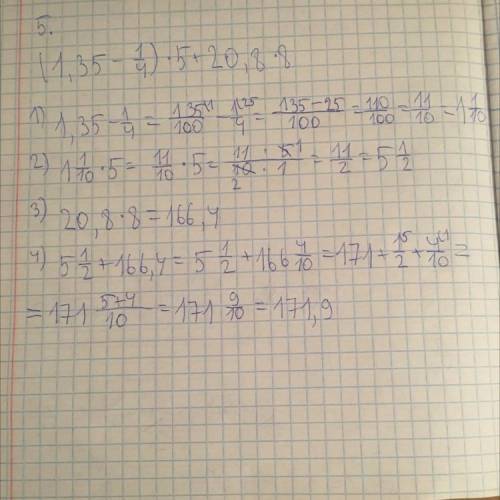 5.
(1,35 - 1/4) · 5 + 20,8 · 8
1) 1,35 - 1/4 = 135\1/100 - 1\25/4 = 135-25/100 = 110/100 = 11/10 = 1 1/10
2) 1 1/10 · 5 = 11/10 · 5 = 11 · 5 1/10 2 · 1 = 11/2 = 5 1/2
3) 20,8 · 8 = 166,4
4) 5 1/2 + 166,4 = 5 1/2 + 166 4/10 = 171 + 1\5/2 + 4\1/10 =
= 171 5+4/10 = 171 9/10 = 171,9